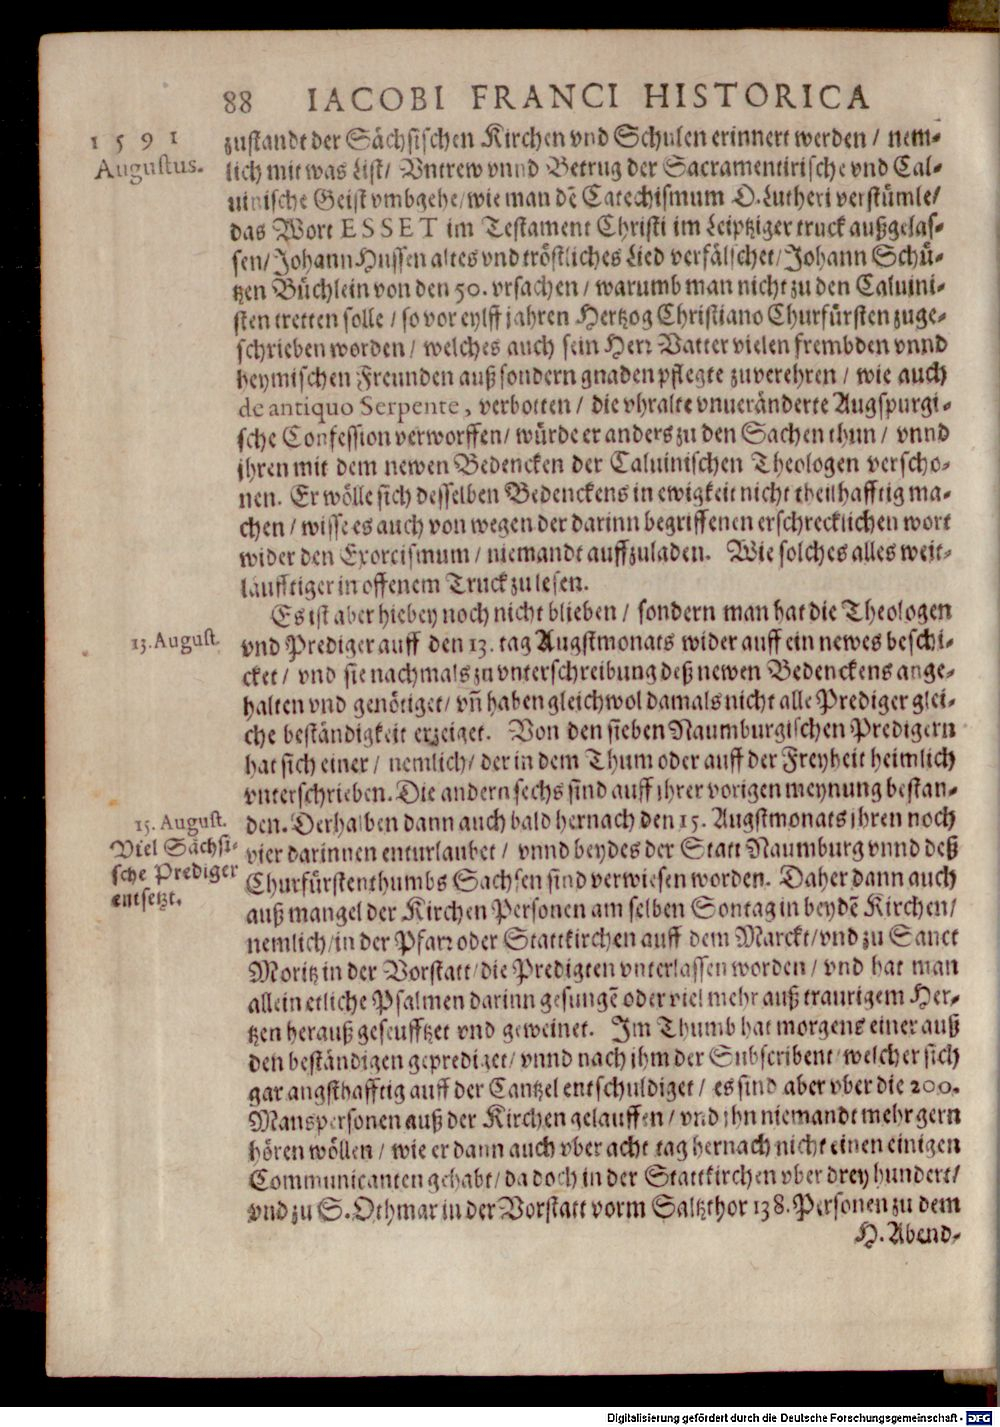 88 IACOBI FRANCI HISTORICA
1591
Augustus.
zustandt der Sächsischen Kirchen vnd Schulen erinnert werden / nem-
lich mit was List / Vntrew vnnd Betrug der Sacramentirische vnd Cal-
uinische Geist vmbgehe / wie man dē Catechismum D. Lutheri verstümle /
das Wort ESSET im Testament Christi im Leiptziger truck außgelas-
sen / Johann Hussen altes vnd tröstliches Lied verfälschet / Johann Schü-
tzen Büchlein von den 50. vrsachen / warumb man nicht zu den Caluini-
sten tretten solle / so vor eylff jahren Hertzog Christiano Churfürsten zuge-
schrieben worden / welches auch sein Herr Vatter vielen frembden vnnd
heymischen Freunden auß sondern gnaden pflegte zuverehren / wie auch
de antiquo Serpente, verbotten / die vhralte vnueränderte Augspurgi-
sche Confession verworffen / würde er anders zu den Sachen thun / vnnd
jhren mit dem newen Bedencken der Caluinischen Theologen verscho-
nen. Er wölle sich desselben Bedenckens in ewigkeit nicht theilhafftig ma-
chen / wisse es auch von wegen der darinn begriffenen erschrecklichen wort
wider den Exorcismum / niemandt auffzuladen. Wie solches alles weit-
läufftiger in offenem Truck zu lesen.
Es ist aber hiebey noch nicht blieben / sondern man hat die Theologen
13. August.
vnd Prediger auff den 13. tag Augstmonats wider auff ein newes beschi-
cket / vnd sie nachmals zu vnterschreibung deß newen Bedenckens ange-
halten vnd genötiget / vñ haben gleichwol damals nicht alle Prediger glei-
che beständigkeit erzeiget. Von den sieben Naumburgischen Predigern
hat sich einer / nemlich / der in dem Thum oder auff der Freyheit heimlich
vnterschrieben. Die andern sechs sind auff ihrer vorigen meynung bestan-
15. August.
Viel Sächsi-
sche Prediger
entsetzt.
den. Derhalben dann auch bald hernach den 15. Augstmonats ihren noch
vier darinnen enturlaubet / vnnd beydes der Statt Naumburg vnnd deß
Churfürstenthumbs Sachsen sind verwiesen worden. Daher dann auch
auß mangel der Kirchen Personen am selben Sontag in beydē Kirchen /
nemlich / in der Pfarr oder Stattkirchen auff dem Marckt / vnd zu Sanct
Moritz in der Vorstatt / die Predigten vnterlassen worden / vnd hat man
allein etliche Psalmen darinn gesungē oder viel mehr auß traurigem Her-
tzen herauß geseufftzet vnd geweinet. Im Thumb hat morgens einer auß
den beständigen geprediget / vnnd nach ihm der Subscribent / welcher sich
gar angsthafftig auff der Cantzel entschuldiget / es sind aber vber die 200.
Manspersonen auß der Kirchen gelauffen / vnd jhn niemandt mehr gern
hören wöllen / wie er dann auch vber acht tag hernach nicht einen einigen
Communicanten gehabt / da doch in der Stattkirchen vber drey hundert /
vnd zu S. Othmar in der Vorstatt vorm Saltzthor 138. Personen zu dem
H. Abend-
Digitalisierung gefördert durch die Deutsche Forschungsgemeinschaft - DFG